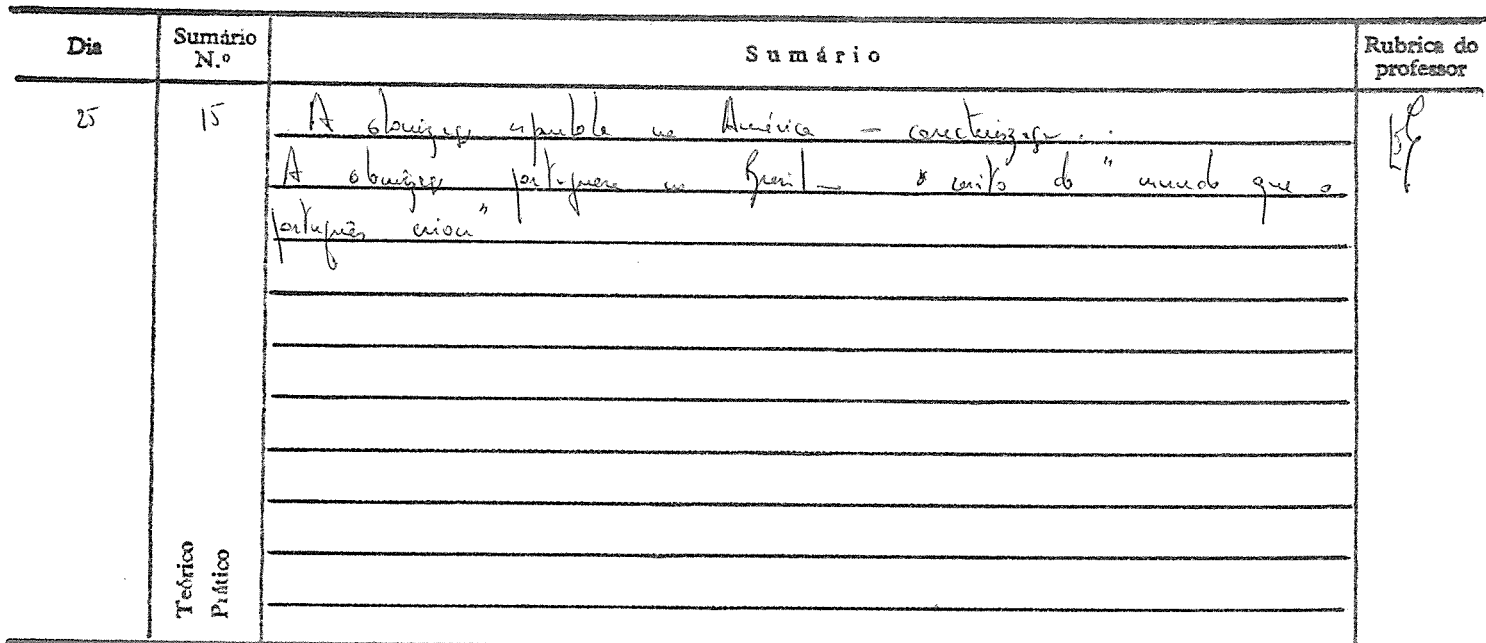 Dia Sumário N.º Sumário Rubrica do professor
25 15 A colonização espanhola na América - caracterização.
A colonização portuguesa no Brasil - o mito do "mundo que o
português criou"
Teórico
Prático